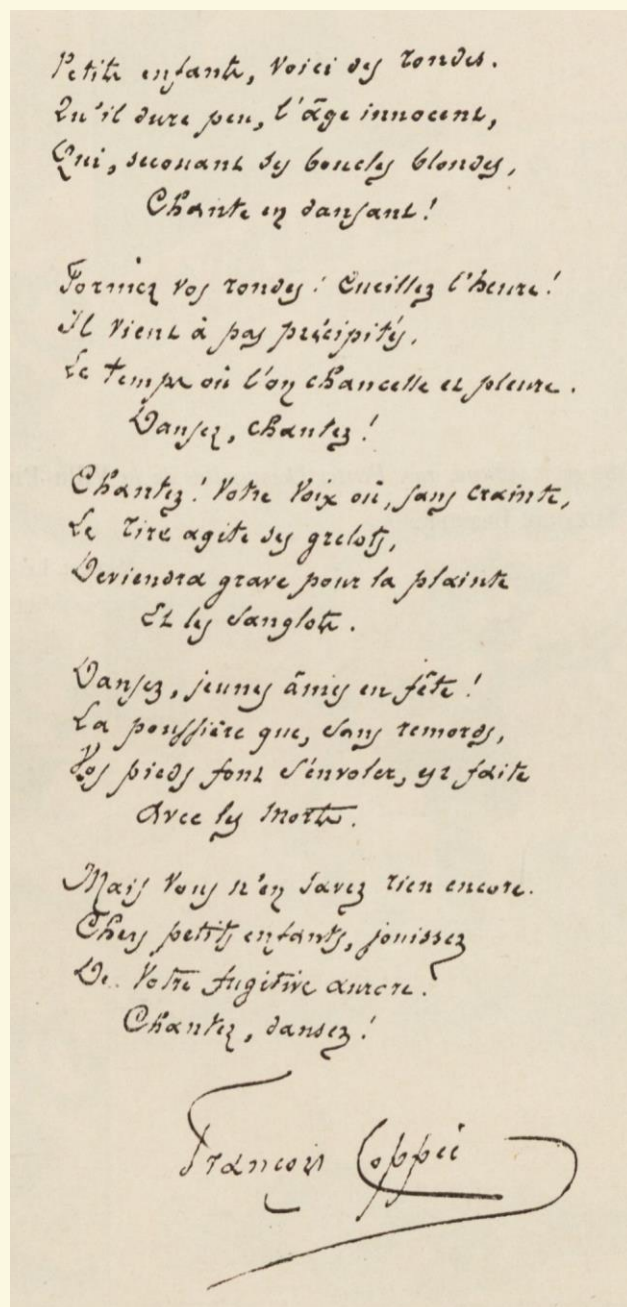 Petits enfants, voici des rondes.
Qu'il dure peu, l'âge innocent,
Qui, secouant ses boucles blondes,
Chante en dansant !
Formez vos rondes ! Cueillez l'heure !
Il vient à pas précipités,
Le temps où l'on chancelle et pleure.
Dansez, chantez !
Chantez ! Votre voix où, sans crainte,
Le rire agite ses grelots,
Deviendra grave pour la plainte
Et les sanglots.
Dansez, jeunes âmes en fête !
La poussière que, sans remords,
Vos pieds font s'envoler, est faite
Avec les morts.
Mais vous n'en savez rien encore.
Chers petits enfants, jouissez
De votre fugitive aurore.
Chantez, dansez !
François Coppée